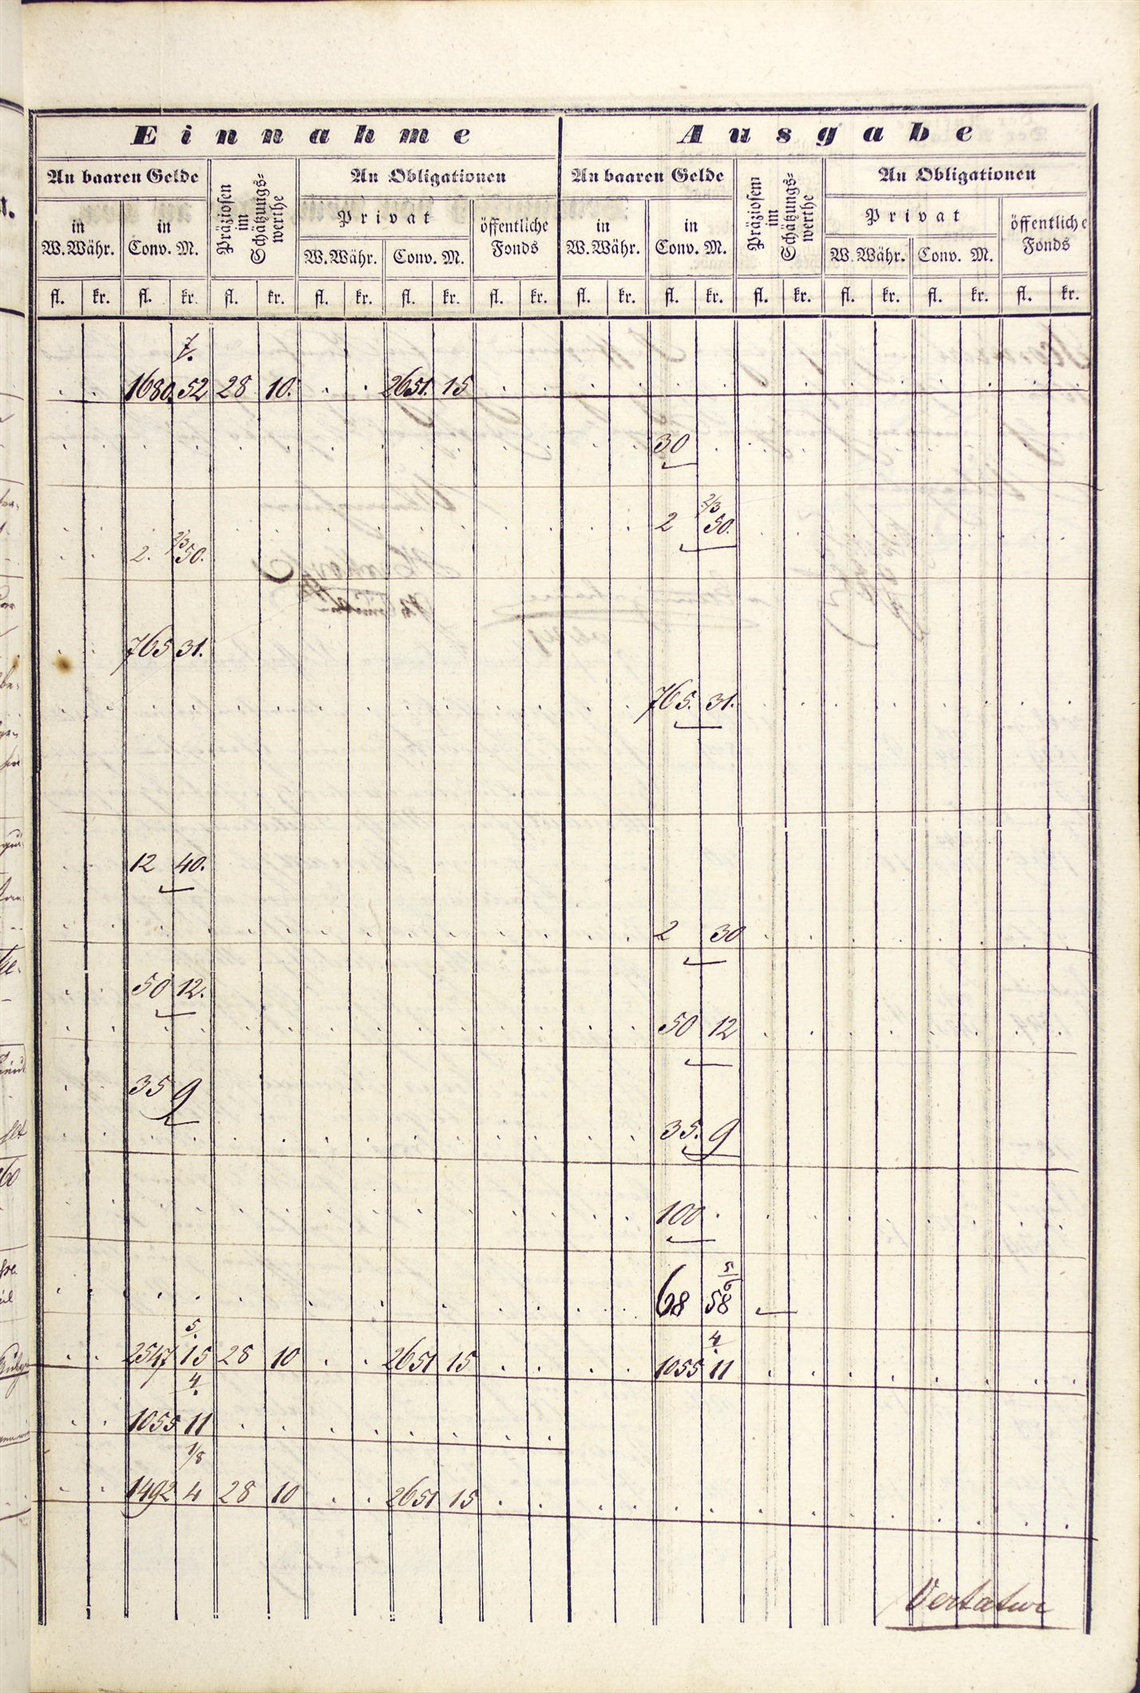 Einnahme Ausgabe
An baaren Gelde Präziosen im Schätzungs-werthe An Obligationen An baaren Gelde Präziosen im Schätzungs-werthe An Obligationen
in W.Währ. in Conv. M. Privat öffentliche Fonds in W.Währ. in Conv. M. Privat öffentliche Fonds
W.Währ. Conv. M. W.Währ. Conv. M.
fl. kr. fl. kr. fl. kr. fl. kr. fl. kr. fl. kr. fl. kr. fl. kr. fl. kr. fl. kr. fl. kr. fl. kr.
7.
1680. 52 28 10. 2651. 15
30
2/3
2 50.
2/3
2. 50.
765 31.
765. 31.
12 40.
2 30
50 12.
50 12
35 9
35. 9
100
5/6
68 58
5. 4
2547 15 28 10 2651 15 1055 11
4.
1055 11
1/8
1492 4 28 10 2651 15
Vertatur